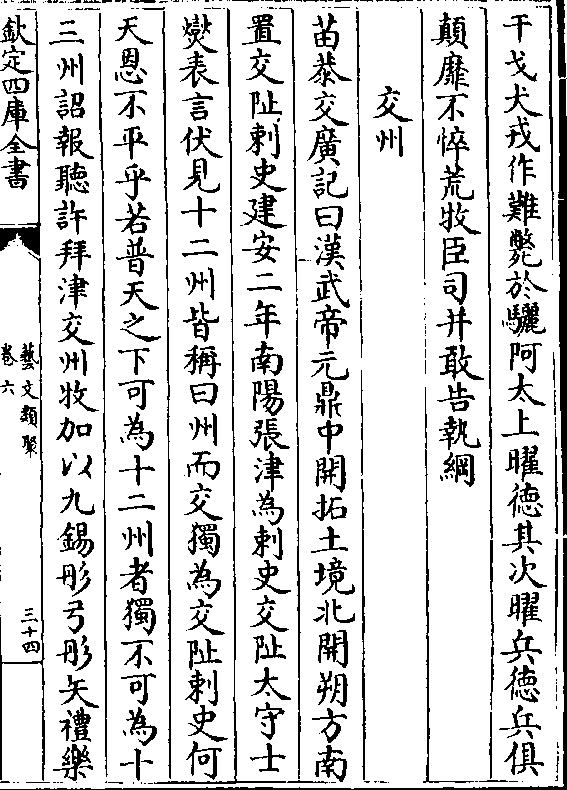 干戈犬戎作難斃於驪阿太上曜徳其次曜兵徳兵俱
顛靡不悴荒牧臣司并敢告執綱
交州
苗恭交廣記曰漢武帝元鼎中開拓土境北開朔方南
置交阯刺史建安二年南陽張津為刺史交阯太守士
燮表言伏見十二州皆稱曰州而交獨為交阯刺史何
天恩不平乎若普天之下可為十二州者獨不可為十
三州詔報聽許拜津交州牧加以九錫彤弓彤矢禮樂
欽定四庫全書
藝文類聚
卷六
三十四